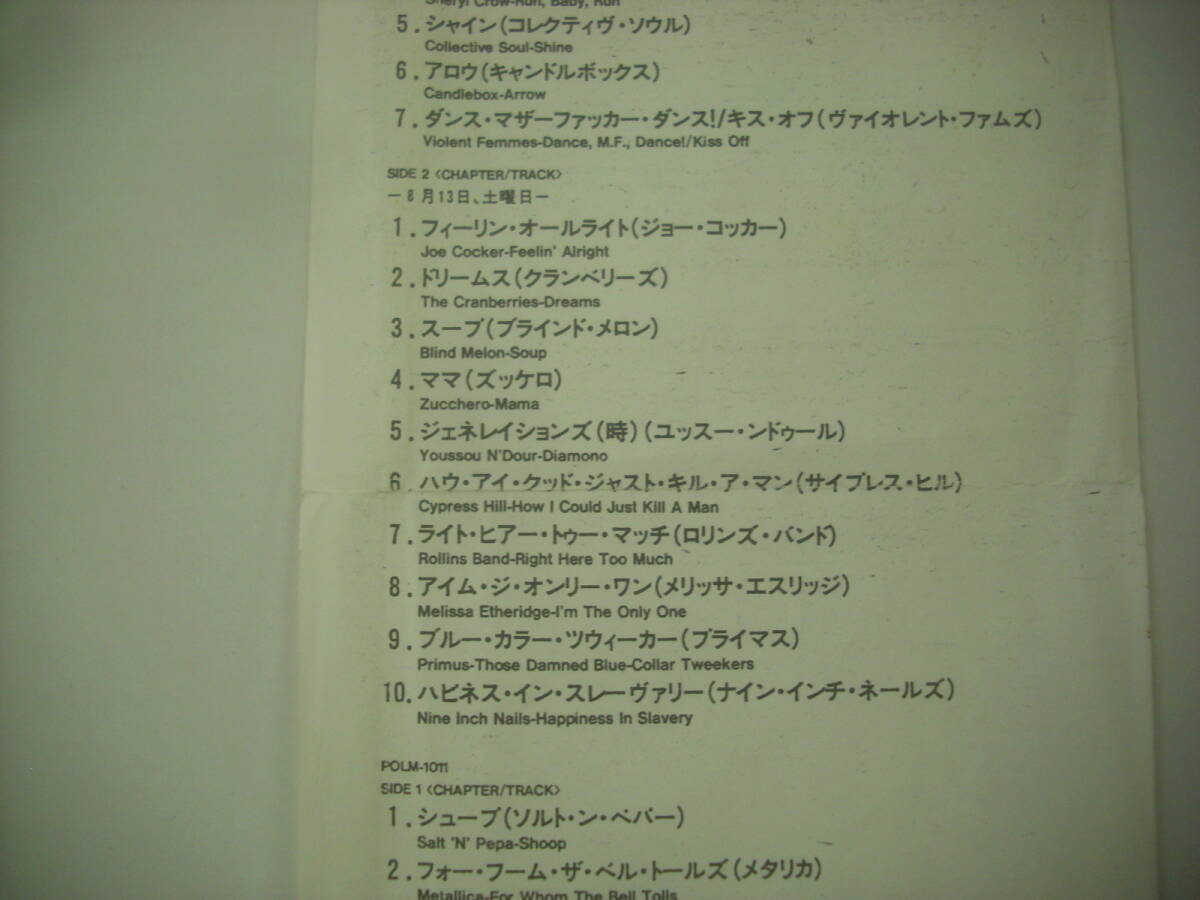 Sheryl Crow-Run, Baby, Run
5.シャイン(コレクティヴ・ソウル)
Collective Soul-Shine
6.アロウ(キャンドルボックス)
Candlebox-Arrow
7.ダンス・マザーファッカー・ダンス!/キス・オフ(ヴァイオレント・ファムズ)
Violent Femmes-Dance, M.F., Dance!/Kiss Off
SIDE 2 〈CHAPTER/TRACK〉
—8月13日、土曜日—
1.フィーリン・オールライト(ジョー・コッカー)
Joe Cocker-Feelin' Alright
2.ドリームス(クランベリーズ)
The Cranberries-Dreams
3.スープ(ブラインド・メロン)
Blind Melon-Soup
4.ママ(ズッケロ)
Zucchero-Mama
5.ジェネレイションズ(時)(ユッスー・ンドゥール)
Youssou N'Dour-Diamono
6.ハウ・アイ・クッド・ジャスト・キル・ア・マン(サイプレス・ヒル)
Cypress Hill-How I Could Just Kill A Man
7.ライト・ヒアー・トゥー・マッチ(ロリンズ・バンド)
Rollins Band-Right Here Too Much
8.アイム・ジ・オンリー・ワン(メリッサ・エスリッジ)
Melissa Etheridge-I'm The Only One
9.ブルー・カラー・ツウィーカー(プライマス)
Primus-Those Damned Blue-Collar Tweekers
10.ハピネス・イン・スレーヴァリー(ナイン・インチ・ネールズ)
Nine Inch Nails-Happiness In Slavery
POLM-1011
SIDE 1 〈CHAPTER/TRACK〉
1.シュープ(ソルト・ン・ペパー)
Salt 'N' Pepa-Shoop
2.フォー・フーム・ザ・ベル・トールズ(メタリカ)
Metallica-For Whom The Bell Tolls